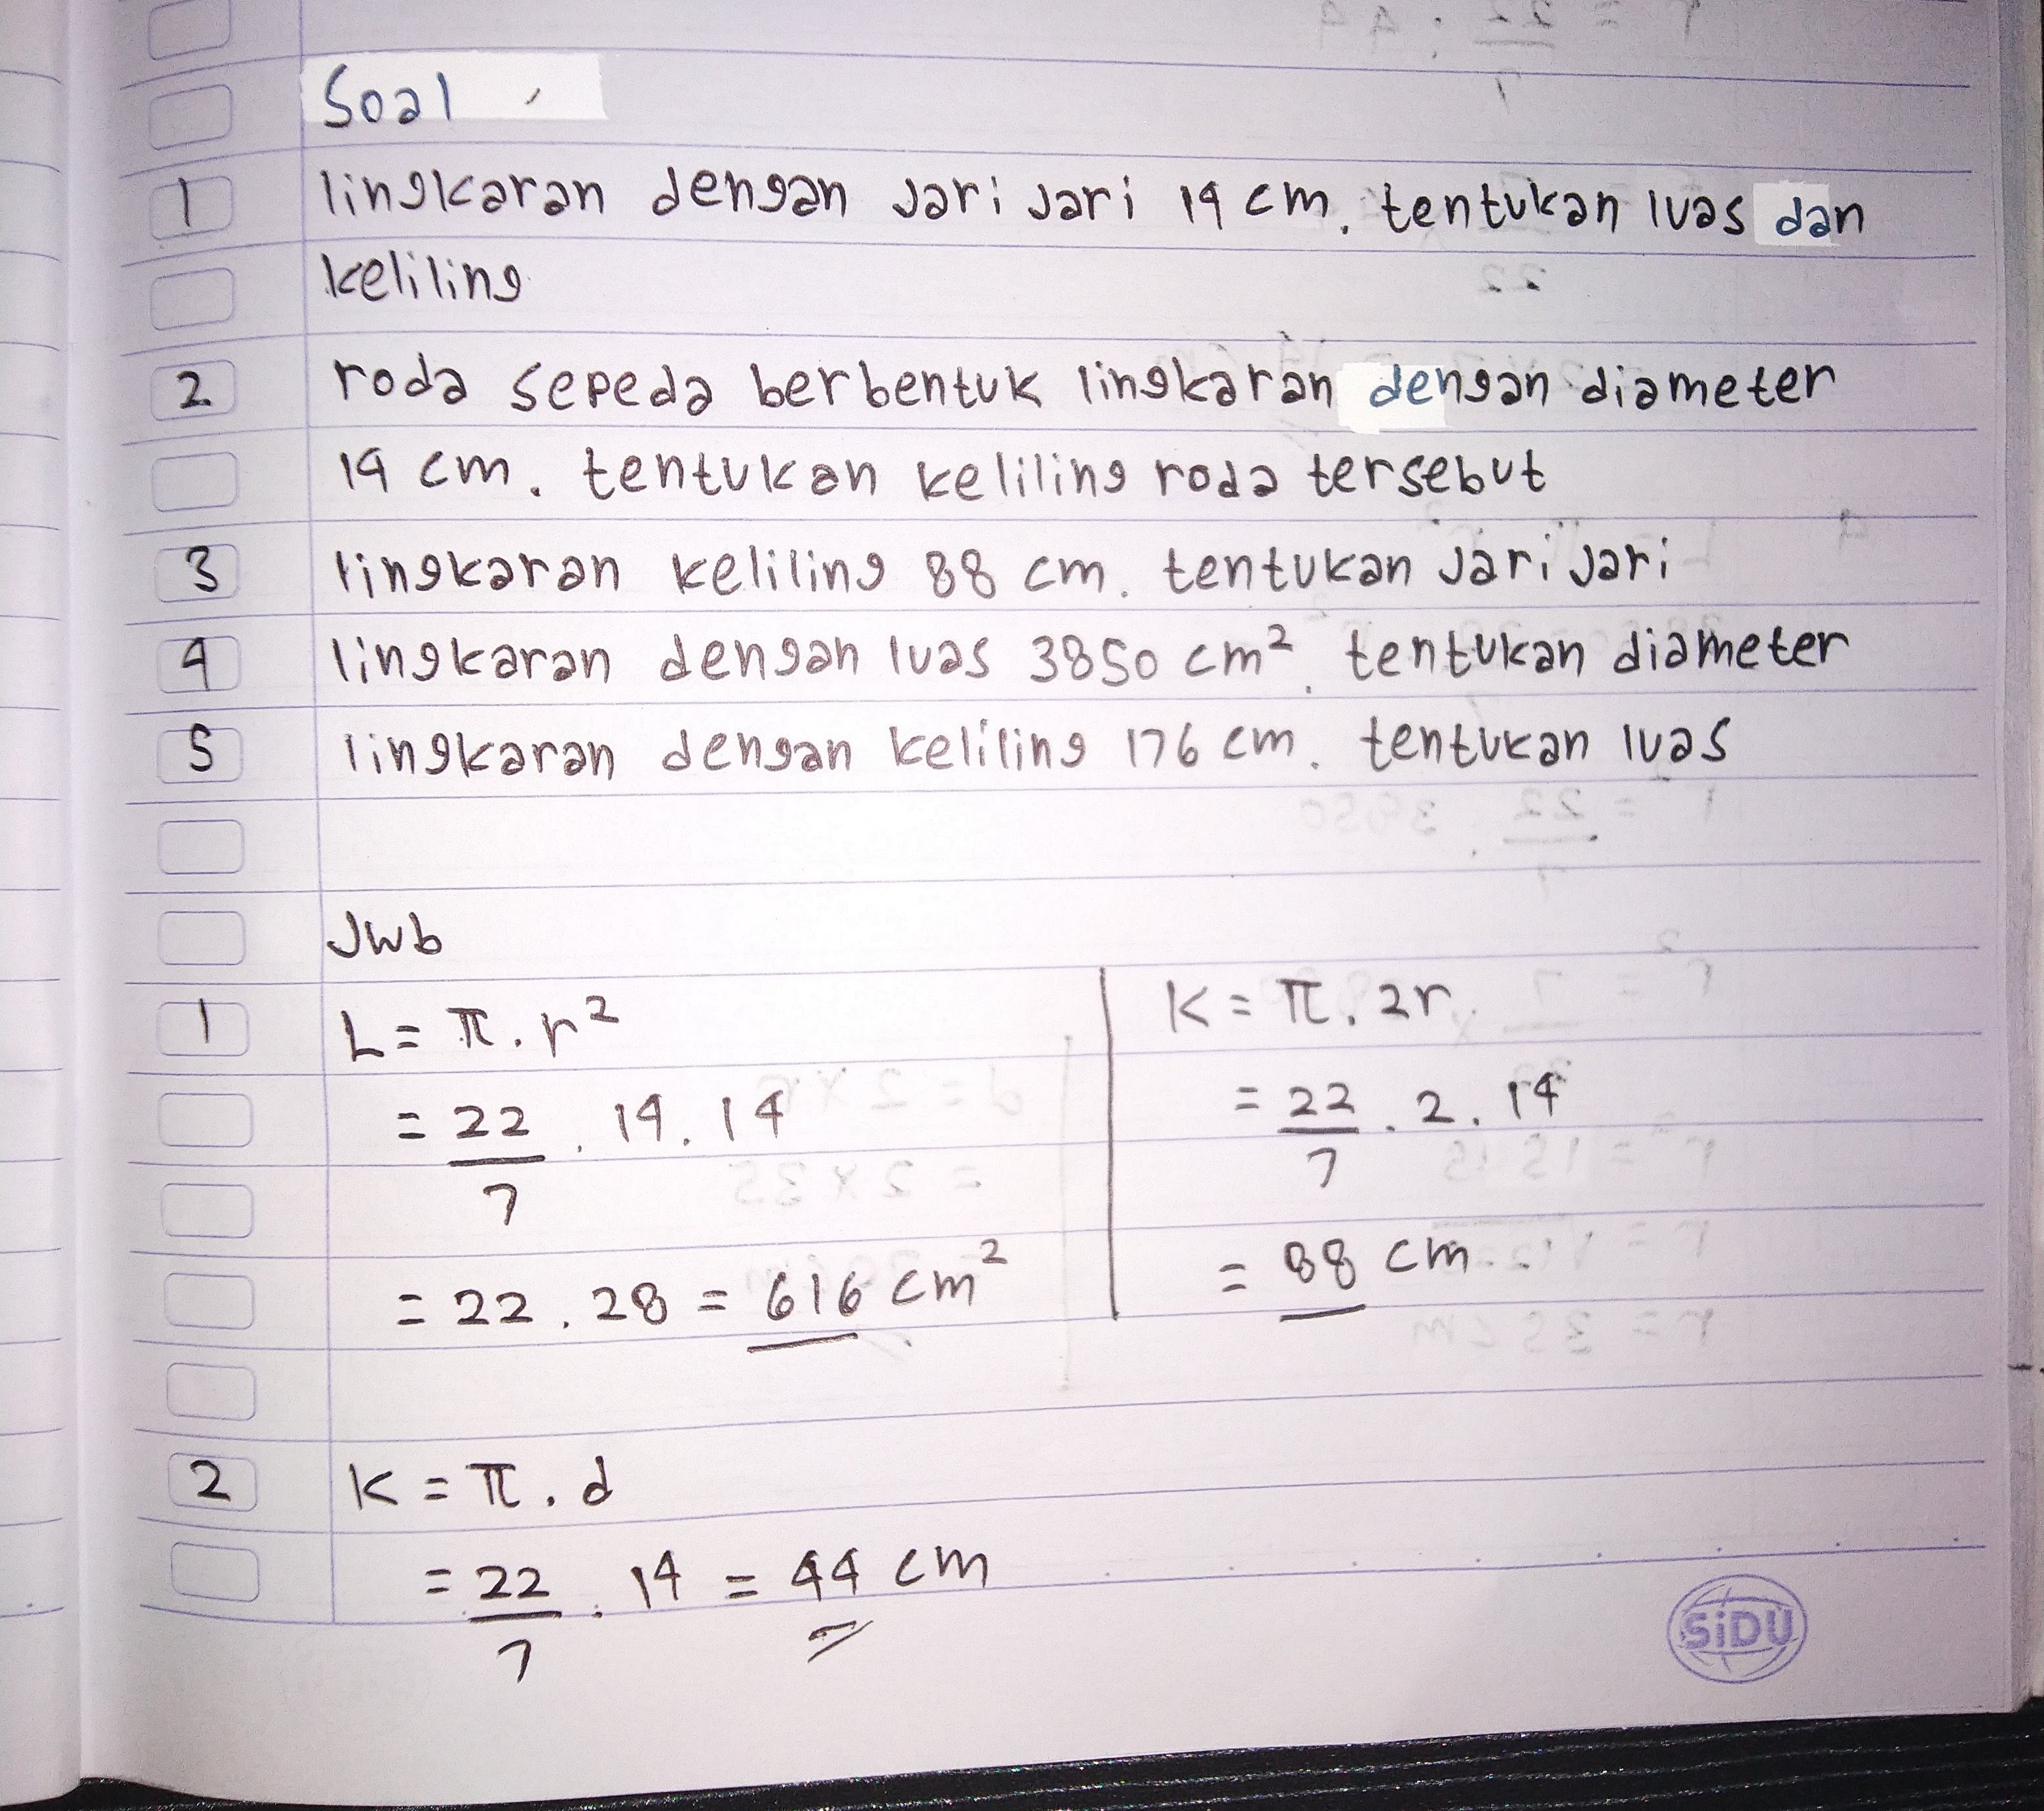 Soal
1 lingkaran dengan jari jari 14 cm. tentukan luas dan
keliling
2 roda sepeda berbentuk lingkaran dengan diameter
14 cm. tentukan keliling roda tersebut
3 lingkaran keliling 88 cm. tentukan jari jari
4 lingkaran dengan luas 3850 cm². tentukan diameter
5 lingkaran dengan keliling 176 cm. tentukan luas
Jwb
1 L = π . r²
= 22/7 . 14 . 14
= 22 . 28 = 616 cm²
K = π . 2r
= 22/7 . 2 . 14
= 88 cm
2 K = π . d
= 22/7 . 14 = 44 cm
SiDU